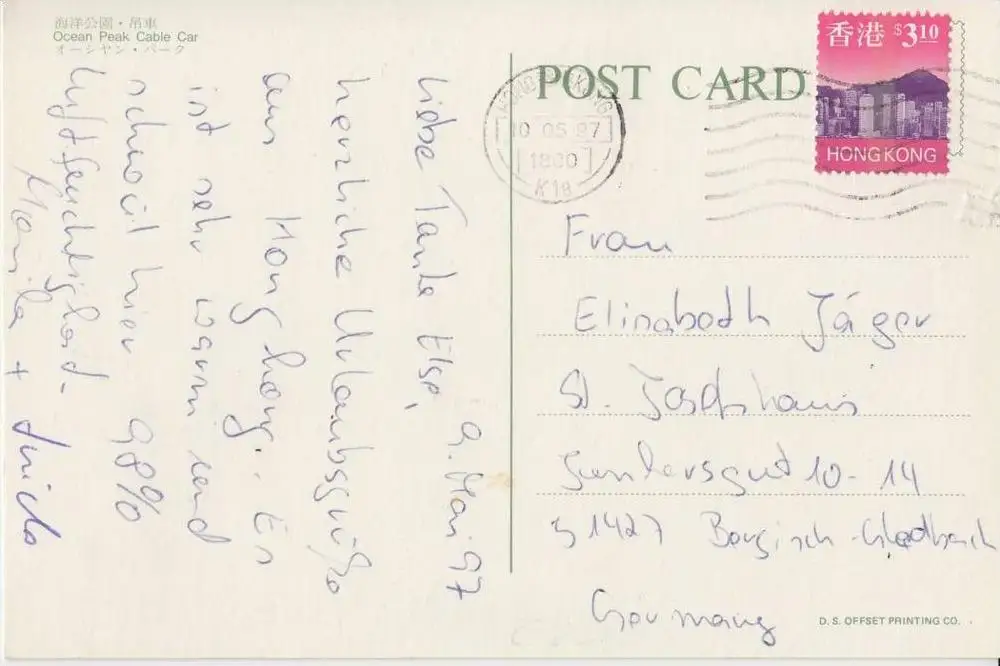 海洋公園·吊車
Ocean Peak Cable Car
オーシャン・パーク
9. Mai 97
Liebe Tante Else,
herzliche Urlaubsgrüße
aus Hong kong.. Es
ist sehr warm und
schwül hier 98%
luftfeuchtigkeit-
+
POST CARD
HONG KONG
10 05 97
1800
K18
香港 $3.10
HONG KONG
Frau
Elisabeth Jäger
St. Josefshaus
Junkersgut 10-14
51427 Bergisch-Gladbach
Germany
D. S. OFFSET PRINTING CO.